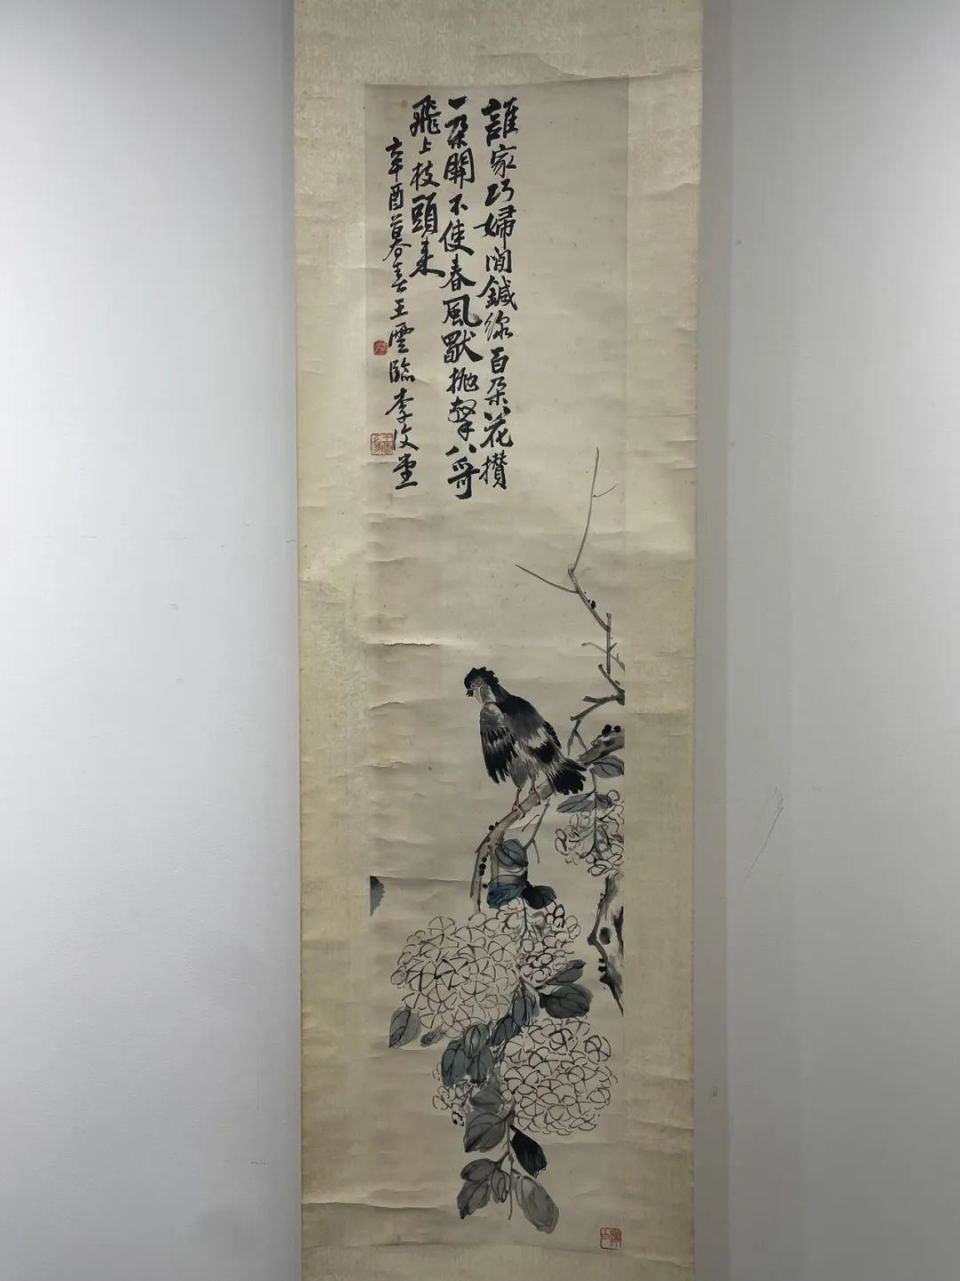 誰家巧婦閒鍼線百朶花攢
一朶開不使春風歇拋擊八哥
飛上枝頭來
辛酉暮春王雲臨李文堂